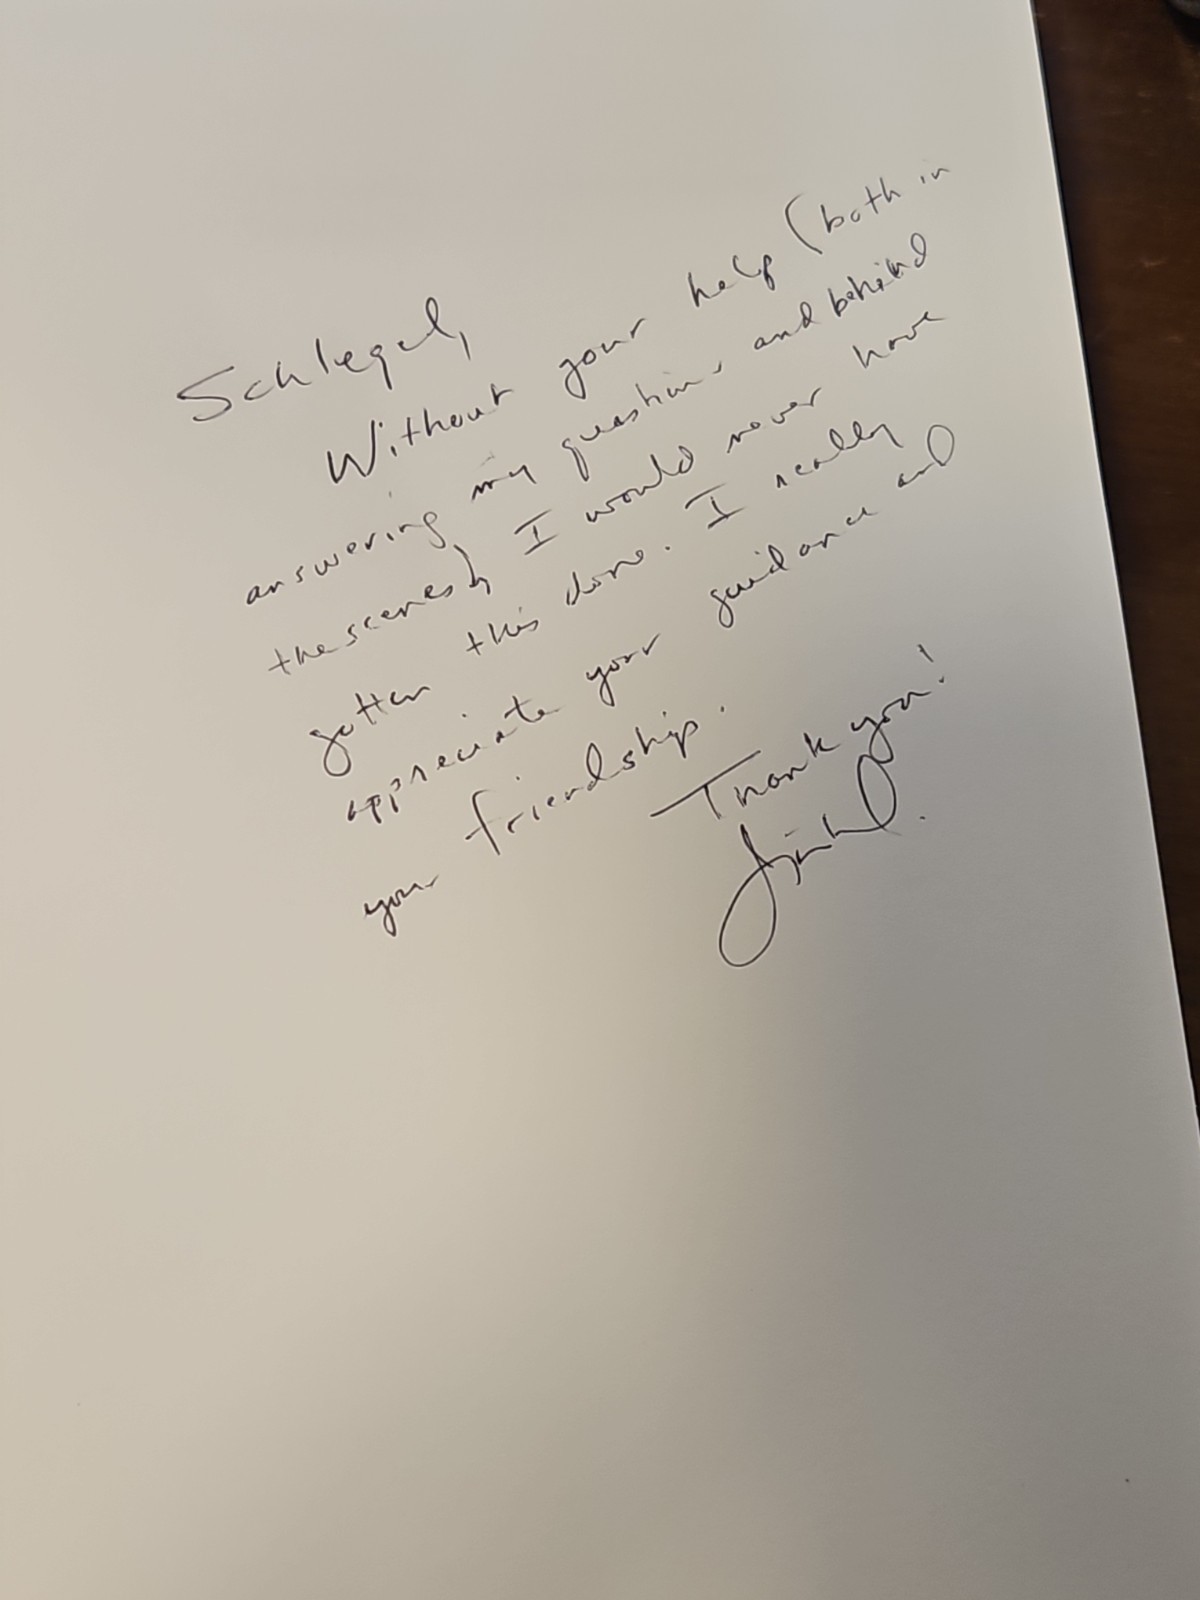 Schlegel,
Without your help (both in
answering my questions and behind
the scenes), I would never have
gotten this done. I really
appreciate your guidance and
your friendship.
Thank you!